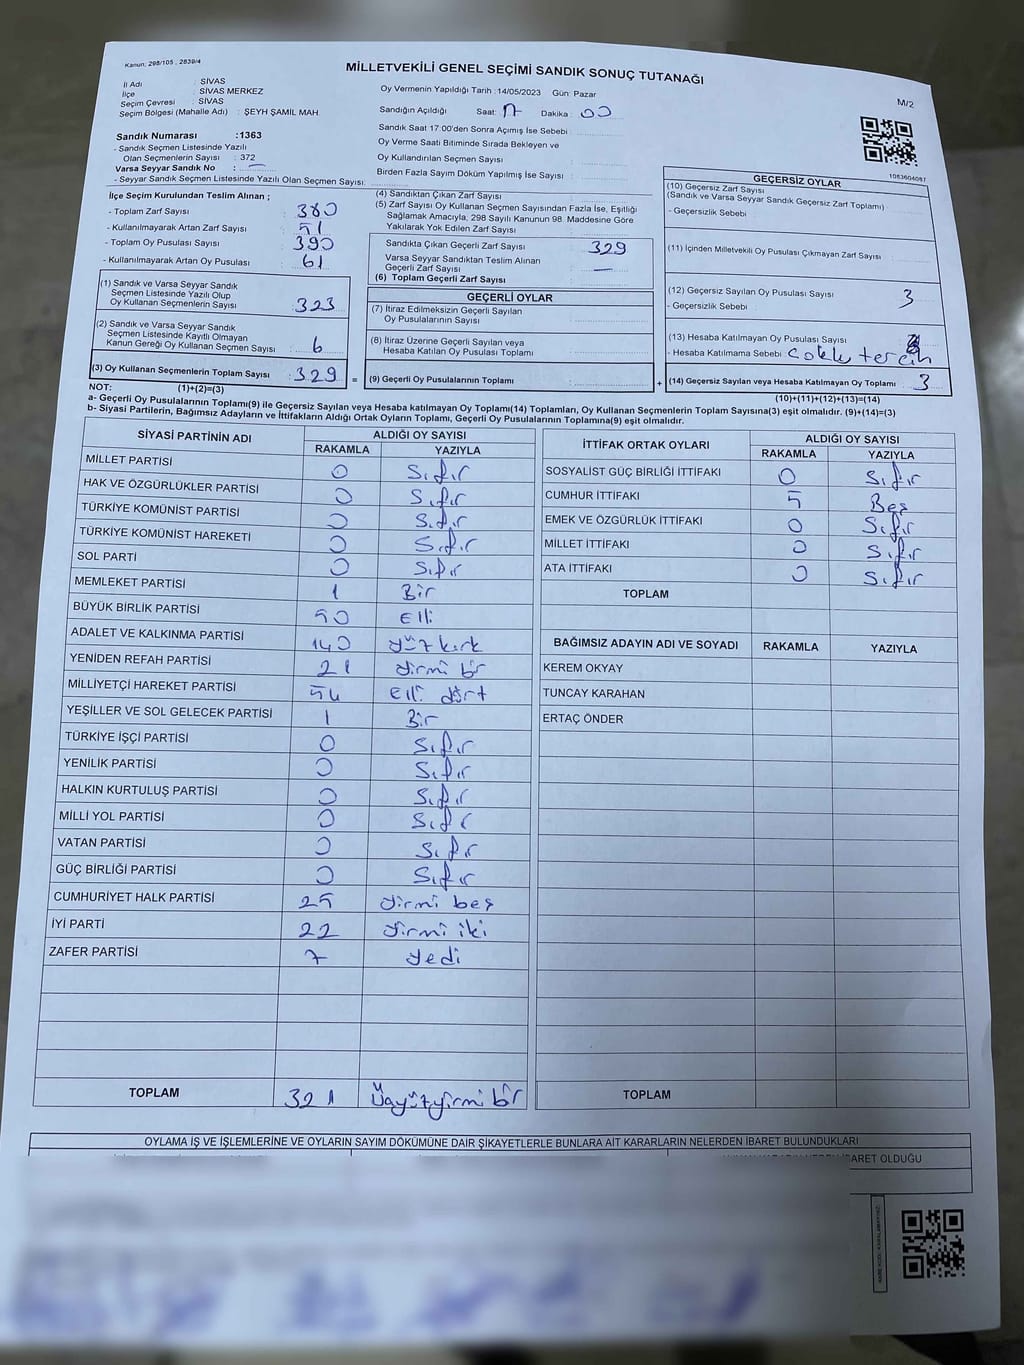 Kanun: 298/105 , 2839/4
MİLLETVEKİLİ GENEL SEÇİMİ SANDIK SONUÇ TUTANAĞI
M/2
İl Adı : SİVAS
İlçe : SİVAS MERKEZ
Seçim Çevresi : SİVAS
Seçim Bölgesi (Mahalle Adı) : ŞEYH ŞAMİL MAH.
Sandık Numarası :1363
- Sandık Seçmen Listesinde Yazılı
Olan Seçmenlerin Sayısı : 372
Varsa Seyyar Sandık No : —
- Seyyar Sandık Seçmen Listesinde Yazılı Olan Seçmen Sayısı:
Oy Vermenin Yapıldığı Tarih :14/05/2023 Gün: Pazar
Sandığın Açıldığı Saat: 17 Dakika : 00
Sandık Saat 17:00'den Sonra Açımış İse Sebebi :
Oy Verme Saati Bitiminde Sırada Bekleyen ve
Oy Kullandırılan Seçmen Sayısı :
Birden Fazla Sayım Döküm Yapılmış İse Sayısı :
1083604087
İlçe Seçim Kurulundan Teslim Alınan ;
- Toplam Zarf Sayısı : 380
- Kullanılmayarak Artan Zarf Sayısı : 51
- Toplam Oy Pusulası Sayısı : 390
- Kullanılmayarak Artan Oy Pusulası : 61
(1) Sandık ve Varsa Seyyar Sandık
Seçmen Listesinde Yazılı Olup
Oy Kullanan Seçmenlerin Sayısı : 323
(2) Sandık ve Varsa Seyyar Sandık
Seçmen Listesinde Kayıtlı Olmayan
Kanun Gereği Oy Kullanan Seçmen Sayısı : 6
(3) Oy Kullanan Seçmenlerin Toplam Sayısı : 329
(1)+(2)=(3)
(4) Sandıktan Çıkan Zarf Sayısı :
(5) Zarf Sayısı Oy Kullanan Seçmen Sayısından Fazla İse, Eşitliği
Sağlamak Amacıyla, 298 Sayılı Kanunun 98. Maddesine Göre
Yakılarak Yok Edilen Zarf Sayısı :
Sandıkta Çıkan Geçerli Zarf Sayısı : 329
Varsa Seyyar Sandıktan Teslim Alınan
Geçerli Zarf Sayısı : —
(6) Toplam Geçerli Zarf Sayısı :
GEÇERLİ OYLAR
(7) İtiraz Edilmeksizin Geçerli Sayılan
Oy Pusulalarının Sayısı :
(8) İtiraz Üzerine Geçerli Sayılan veya
Hesaba Katılan Oy Pusulası Toplamı :
= (9) Geçerli Oy Pusulalarının Toplamı : +
GEÇERSİZ OYLAR
(10) Geçersiz Zarf Sayısı
(Sandık ve Varsa Seyyar Sandık Geçersiz Zarf Toplamı) :
- Geçersizlik Sebebi :
(11) İçinden Milletvekili Oy Pusulası Çıkmayan Zarf Sayısı :
(12) Geçersiz Sayılan Oy Pusulası Sayısı : 3
- Geçersizlik Sebebi :
(13) Hesaba Katılmayan Oy Pusulası Sayısı :
- Hesaba Katılmama Sebebi : Çoklu tercih
(14) Geçersiz Sayılan veya Hesaba Katılmayan Oy Toplamı : 3
(10)+(11)+(12)+(13)=(14)
NOT:
a- Geçerli Oy Pusulalarının Toplamı(9) ile Geçersiz Sayılan veya Hesaba katılmayan Oy Toplamı(14) Toplamları, Oy Kullanan Seçmenlerin Toplam Sayısına(3) eşit olmalıdır. (9)+(14)=(3)
b- Siyasi Partilerin, Bağımsız Adayların ve İttifakların Aldığı Ortak Oyların Toplamı, Geçerli Oy Pusulalarının Toplamına(9) eşit olmalıdır.
SİYASİ PARTİNİN ADI ALDIĞI OY SAYISI
RAKAMLA YAZIYLA
MİLLET PARTİSİ 0 Sıfır
HAK VE ÖZGÜRLÜKLER PARTİSİ 0 Sıfır
TÜRKİYE KOMÜNİST PARTİSİ 0 Sıfır
TÜRKİYE KOMÜNİST HAREKETİ 0 Sıfır
SOL PARTİ 0 Sıfır
MEMLEKET PARTİSİ 1 Bir
BÜYÜK BİRLİK PARTİSİ 50 Elli
ADALET VE KALKINMA PARTİSİ 140 yüz kırk
YENİDEN REFAH PARTİSİ 21 yirmi bir
MİLLİYETÇİ HAREKET PARTİSİ 54 Elli dört
YEŞİLLER VE SOL GELECEK PARTİSİ 1 Bir
TÜRKİYE İŞÇİ PARTİSİ 0 Sıfır
YENİLİK PARTİSİ 0 Sıfır
HALKIN KURTULUŞ PARTİSİ 0 Sıfır
MİLLİ YOL PARTİSİ 0 Sıfır
VATAN PARTİSİ 0 Sıfır
GÜÇ BİRLİĞİ PARTİSİ 0 Sıfır
CUMHURİYET HALK PARTİSİ 25 yirmi beş
İYİ PARTİ 22 yirmi iki
ZAFER PARTİSİ 7 yedi
TOPLAM 321 Üçyüzyirmi bir
İTTİFAK ORTAK OYLARI ALDIĞI OY SAYISI
RAKAMLA YAZIYLA
SOSYALİST GÜÇ BİRLİĞİ İTTİFAKI 0 Sıfır
CUMHUR İTTİFAKI 5 Beş
EMEK VE ÖZGÜRLÜK İTTİFAKI 0 Sıfır
MİLLET İTTİFAKI 0 Sıfır
ATA İTTİFAKI 0 Sıfır
TOPLAM
BAĞIMSIZ ADAYIN ADI VE SOYADI RAKAMLA YAZIYLA
KEREM OKYAY
TUNCAY KARAHAN
ERTAÇ ÖNDER
TOPLAM
OYLAMA İŞ VE İŞLEMLERİNE VE OYLARIN SAYIM DÖKÜMÜNE DAİR ŞİKAYETLERLE BUNLARA AİT KARARLARIN NELERDEN İBARET BULUNDUKLARI
İBARET OLDUĞU